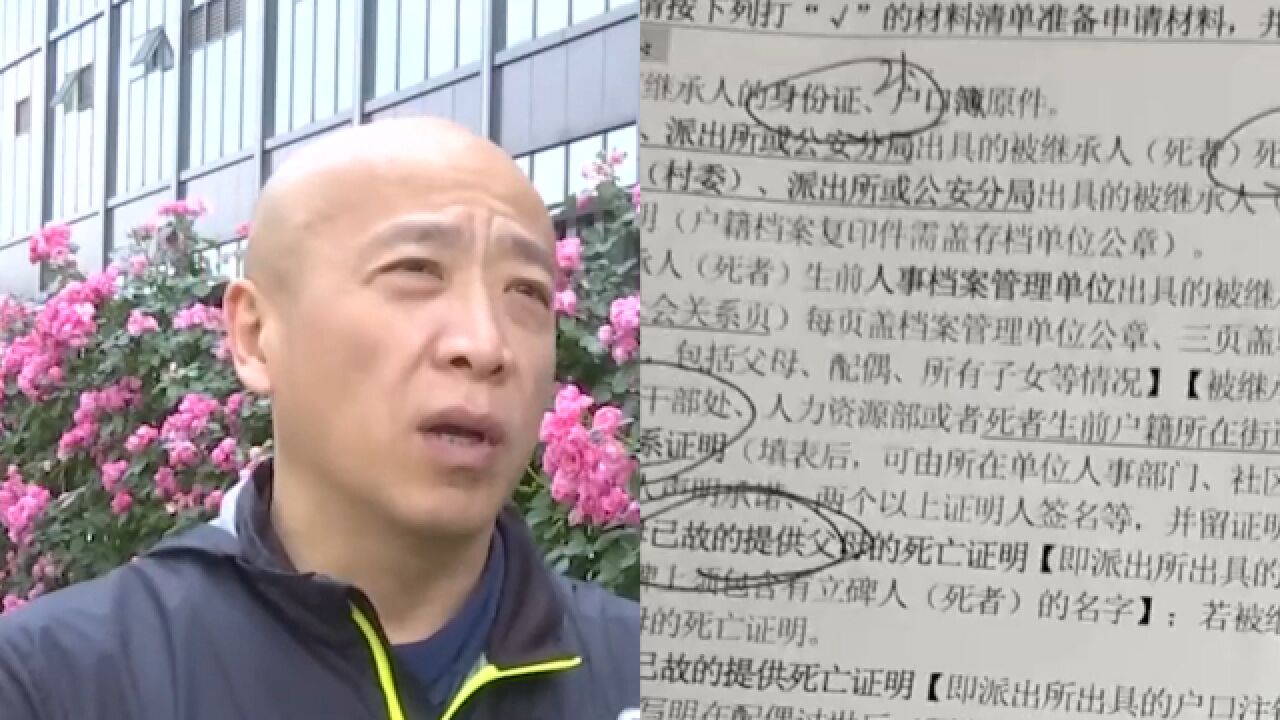 请按下列打“√”的材料清单准备申请材料，并
继承人的身份证、户口簿原件。
、派出所或公安分局出具的被继承人（死者）死
（村委）、派出所或公安分局出具的被继承人
明（户籍档案复印件需盖存档单位公章）。
承人（死者）生前人事档案管理单位出具的被继
会关系页）每页盖档案管理单位公章、三页盖
，包括父母、配偶、所有子女等情况】【被继
干部处、人力资源部或者死者生前户籍所在街
系证明（填表后，可由所在单位人事部门、社区
声明承诺、两个以上证明人签名等，并留证明
已故的提供父母的死亡证明【即派出所出具的
碑上须包含有立碑人（死者）的名字】；若被继
的死亡证明。
已故的提供死亡证明【即派出所出具的户口注销
写明在配偶过世后